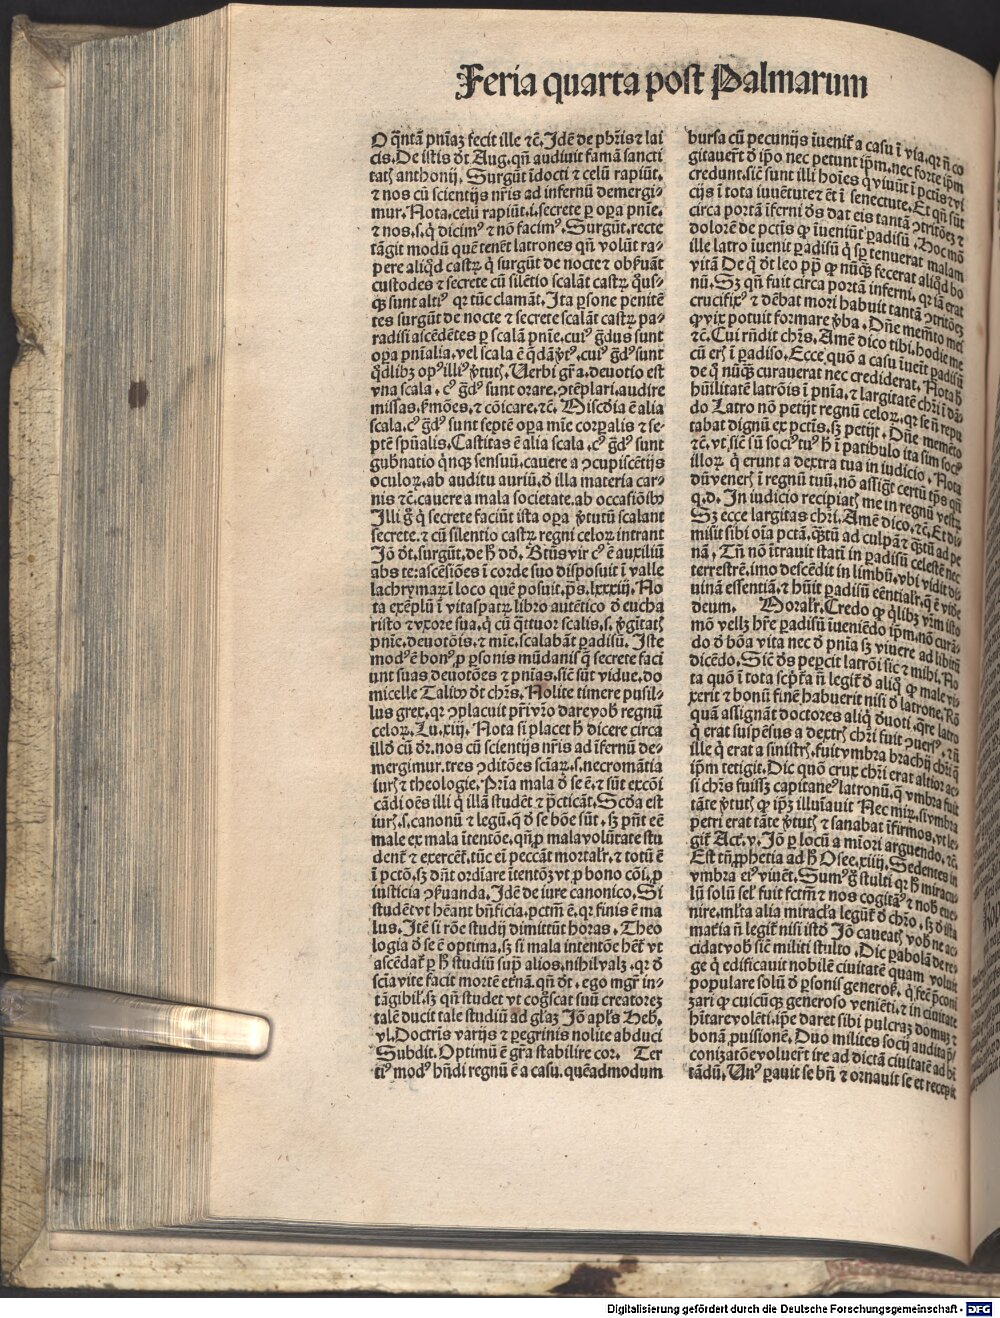 Feria quarta post Palmarum
O q̃ntã pnĩaʒ fecit ille ⁊c̃. Idẽ de pbr̃is ⁊ lai
cis. De istis dt̃ Aug. qñ audiuit famã sancti
tatꝭ anthonij. Surgũt ĩdocti ⁊ celũ rapiũt.
⁊ nos cũ scientijs nr̃is ad infernũ demergi-
mur. Nota. celũ rapiũt .i. secrete ꝑ oꝑa pnĩe.
⁊ nos .s. q̇ dicimꝰ ⁊ nõ facimꝰ. Surgũt. recte
tãgit modũ quẽ tenẽt latrones qñ volũt ra-
pere aliq̇d castꝝ q̇ surgũt de nocte ⁊ obẜuãt
custodes ⁊ secrete cũ silẽtio scalãt castꝝ q̇us-
qꝫ sunt altiꝰ qꝛ tũc clamãt. Ita ꝑsone penitẽ
tes surgũt de nocte ⁊ secrete scalãt castꝝ pa-
radisi ascẽdẽtes ꝑ scalã pnĩe. cuiꝰ g̃dus sunt
oꝑa pnĩalia. vel scala ẽ q̇dã ṽtꝰ. cuiꝰ g̃dꝰ sunt
q̃dlibꝫ opꝰ illiꝰ ṽtutꝭ. Uerbi gr̃a. deuotio est
vna scala . cꝰ g̃dꝰ sunt orare. ꝯtẽplari. audire
missas. ẜmões. ⁊ cõicare. ⁊c̃. Mĩscdĩa ẽ alia
scala. cꝰ g̃dꝰ sunt septẽ oꝑa mĩe corꝑalis ⁊ se-
ptẽ spũalis. Castitas ẽ alia scala . cꝰ g̃dꝰ sunt
gub̃natio q̇nqꝫ sensuũ. cauere a ꝯcupiscẽtijs
oculoꝝ. ab auditu auriũ. d̃ illa materia car-
nis ⁊c̃. cauere a mala societate. ab occasiõibꝰ
Illi g̃ q̇ secrete faciũt ista oꝑa ṽtutũ scalant
secrete. ⁊ cũ silentio castꝝ regni celoꝝ intrant
Iõ dt̃. surgũt. de h̃ dd̃. Bt̃us vir cꝰ ẽ auxiliũ
abs te: ascẽsiões ĩ corde suo disposuit ĩ valle
lachrymaꝝ ĩ loco quẽ posuit. p̃s. lxxxiij. No
ta exẽplũ ĩ vitaspatꝝ libro autẽtico d̃ eucha
risto ⁊ vxore sua. q̇ cũ q̃ttuor scalis .s. ṽgitatꝭ
pnĩe. deuotõis. ⁊ mĩe. scalabãt ꝑadisũ. Iste
modꝰ ẽ bonꝰ ꝓ ꝑsonis mũdanis q̃ secrete faci
unt suas deuotões ⁊ pnĩas. sic̃ sũt vidue. do
micelle Talibꝰ dt̃ chr̃s. Nolite timere pusil-
lus grex. qꝛ ꝯplacuit pr̃i vr̃o dare vob̃ regnũ
celoꝝ. Lu. xij. Nota si placet h̃ dicere circa
illd̃ cũ dr̃. nos cũ scientijs nr̃is ad ĩfernũ de-
mergimur. tres ꝯditões scĩaꝝ .s. necromãtia
iurꝭ ⁊ theologie. Pr̃ia mala d̃ se ẽ. ⁊ sũt excõi
cãdi oẽs illi q̇ illã studẽt ⁊ p̃cticãt. Scd̃a est
iurꝭ .s. canonũ ⁊ legũ. q̃ d̃ se bõe sũt . sꝫ pñt eẽ
male ex mala ĩtentõe. qñꝫ ꝓ mala volũtate stu
dent̃ ⁊ exercẽt. tũc eĩ peccãt mortalr̃. ⁊ totũ ẽ
ĩ pctõ. sꝫ dñt ordĩare ĩtentõꝫ vt ꝓ bono cõi. ꝓ
iusticia ꝯẜuanda. Idẽ de iure canonico. Si
studẽt vt heãnt bñficia. pctm̃ ẽ. qꝛ finis ẽ ma
lus. Itẽ si rõe studij dimittũt horas . Theo
logia d̃ se ẽ optima. sꝫ si mala intentõe hẽt̃ vt
ascẽdat̃ ꝑ h̃ studiũ supͬ alios. nihil valꝫ. qꝛ d̃
scĩa vite facit mortẽ etñã. qñ dt̃ . ego mgr̃ in-
tãgibil̃. sꝫ qñ studet vt cog̃scat suũ creatoreꝫ
talẽ ducit tale studiũ ad gl̃aꝫ Iõ apl̃s Heb̃.
vl. Doctr̃is varijs ⁊ ꝑegrinis nolite abduci
Subdit. Optimũ ẽ gr̃a stabilire cor. Ter
tiꝰ modꝰ hñdi regnũ ẽ a casu. quẽadmodum
bursa cũ pecunijs ĩuenit̃ a casu ĩ via. qꝛ ñ co
gitauer̃t d̃ ip̃o nec petunt ip̃m. nec forte ip̃m
credunt. sic̃ sunt illi hoĩes q̇ viuũt ĩ pctĩs ⁊ vi
cijs ĩ tota iuuẽtute ⁊ ẽt ĩ senectute. Et qñ sũt
circa portã ĩferni d̃s dat eis tantã ꝯtritõeꝫ ⁊
dolorẽ de pctĩs ꝙ ĩueniũt ꝑadisũ . Hoc mõ
ille latro ĩuenit ꝑadisũ q̇ sꝑ tenuerat malam
vitã De q̇ dt̃ leo pp̃ ꝙ nũqꝫ fecerat aliq̇d bo
nũ. Sꝫ qñ fuit circa portã inferni. qꝛ iã erat
crucifixꝰ ⁊ dẽbat mori habuit tantã ꝯtritõeꝫ
ꝙ vix potuit formare ṽba . Dñe memẽto mei
⁊c̃. Cui rñdit chr̃s. Amẽ dico tibi. hodie me
cũ er̃ ĩ ꝑadiso. Ecce quõ a casu ĩuẽit ꝑadisũ
de q̇ nũqꝫ curauerat nec crediderat. Nota h̃
hũilitatẽ latrõis ĩ pnĩa. ⁊ largitatẽ chr̃i ĩ dã-
do Latro nõ petijt regnũ celoꝝ. qꝛ se ñ repu
tabat dignũ ex pctĩs. sꝫ petijt . Dñe memẽto
⁊c̃. vt sic̃ sũ sociꝰ tuꝰ h̃ ĩ patibulo ita sim sociꝰ
illoꝝ q̇ erunt a dextra tua in iudicio . Nota
dũ venerꝭ ĩ regnũ tuũ. nõ assig̃t certũ tp̃s qñ
q.d. In iudicio recipiatꝭ me in regnũ vestꝝ
Sꝫ ecce largitas chr̃i. Amẽ dico. ⁊c̃. Et di-
misit sibi oĩa pctã. q̃tũ ad culpã ⁊ q̃tũ ad pe
nã. Tñ nõ ĩtrauit statĩ in ꝑadisũ celestẽ nec
terrestrẽ. imo descẽdit in limbũ. vbi vidit di-
uinã essentiã. ⁊ hũit ꝑadisũ eẽntialr̃. q̃ ẽ vide
deum. Moralr̃. Credo ꝙ q̇libꝫ vrm̃ isto
mõ vellꝫ hr̃e ꝑadisũ ĩueniẽdo ip̃m. nõ curã-
do d̃ bõa vita nec d̃ pnĩa sꝫ viuere ad libitũ
dicẽdo. Sic̃ d̃s peꝑcit latrõi sic̃ ⁊ mihi. No
ta quõ ĩ tota scp̃t̃ra ñ legit̃ d̃ aliq̇ ꝙ male vi-
xerit ⁊ bonũ finẽ habuerit nisi d̃ latrone. Rõ
quã assignãt doctores aliq̇ d̃uoti. q̃re latro
q̇ erat suspẽsus a dextrꝭ chr̃i fuit ꝯuersꝰ. ⁊ ñ
ille q̇ erat a sinistrꝭ. fuit vmbra brachij chr̃i q̃
ip̃m tetigit. Dic quõ crux chr̃i erat altior ac
si chr̃s fuissꝫ capitaneꝰ latronũ. q̇ vmbra fuit
tãte ṽtutꝭ ꝙ ip̃ꝫ illuĩauit Nec mirꝫ. si vmbra
petri erat tãte ṽtutꝭ ⁊ sanabat ĩfirmos. vt le-
git̃ Act̃. v. Iõ ꝑ locũ a mĩori arguendo. ⁊c̃.
Est tñ ꝓphetia ad h̃ Osee. xiiij. Sedentes in
vmbra eiꝰ viuẽt. Sumꝰ g̃ stulti qꝛ h̃ miracu
lũ solũ sel̃ fuit fctm̃ ⁊ nos cogitãꝰ ⁊ nob̃ eue-
nire. ml̃ta alia miracl̃a legũt̃ d̃ chr̃o. sꝫ d̃ ista
mat̃ia ñ legit̃ nisi istd̃ Iõ caueatꝭ vob̃ ne ac-
cidat vob̃ sic̃ militi stulto . Dic ꝑabolã de re-
ge q̇ edificauit nobilẽ ciuitatẽ quam voluit
populare solũ d̃ ꝑsonis generosꝭ. q̇ fec̃ p̃coni
zari ꝙ cuicũqꝫ generoso veniẽti. ⁊ in ciuitate
hĩtare volẽti. ip̃e daret sibi pulcraꝫ domũ ⁊
bonã ꝓuisionẽ. Duo milites socij audita p̃-
conizatõe voluer̃t ire ad dictã ciuitatẽ ad hĩ
tãdũ. Unꝰ ꝑauit se bñ ⁊ ornauit se et recepit
Digitalisierung gefördert durch die Deutsche Forschungsgemeinschaft - DFG